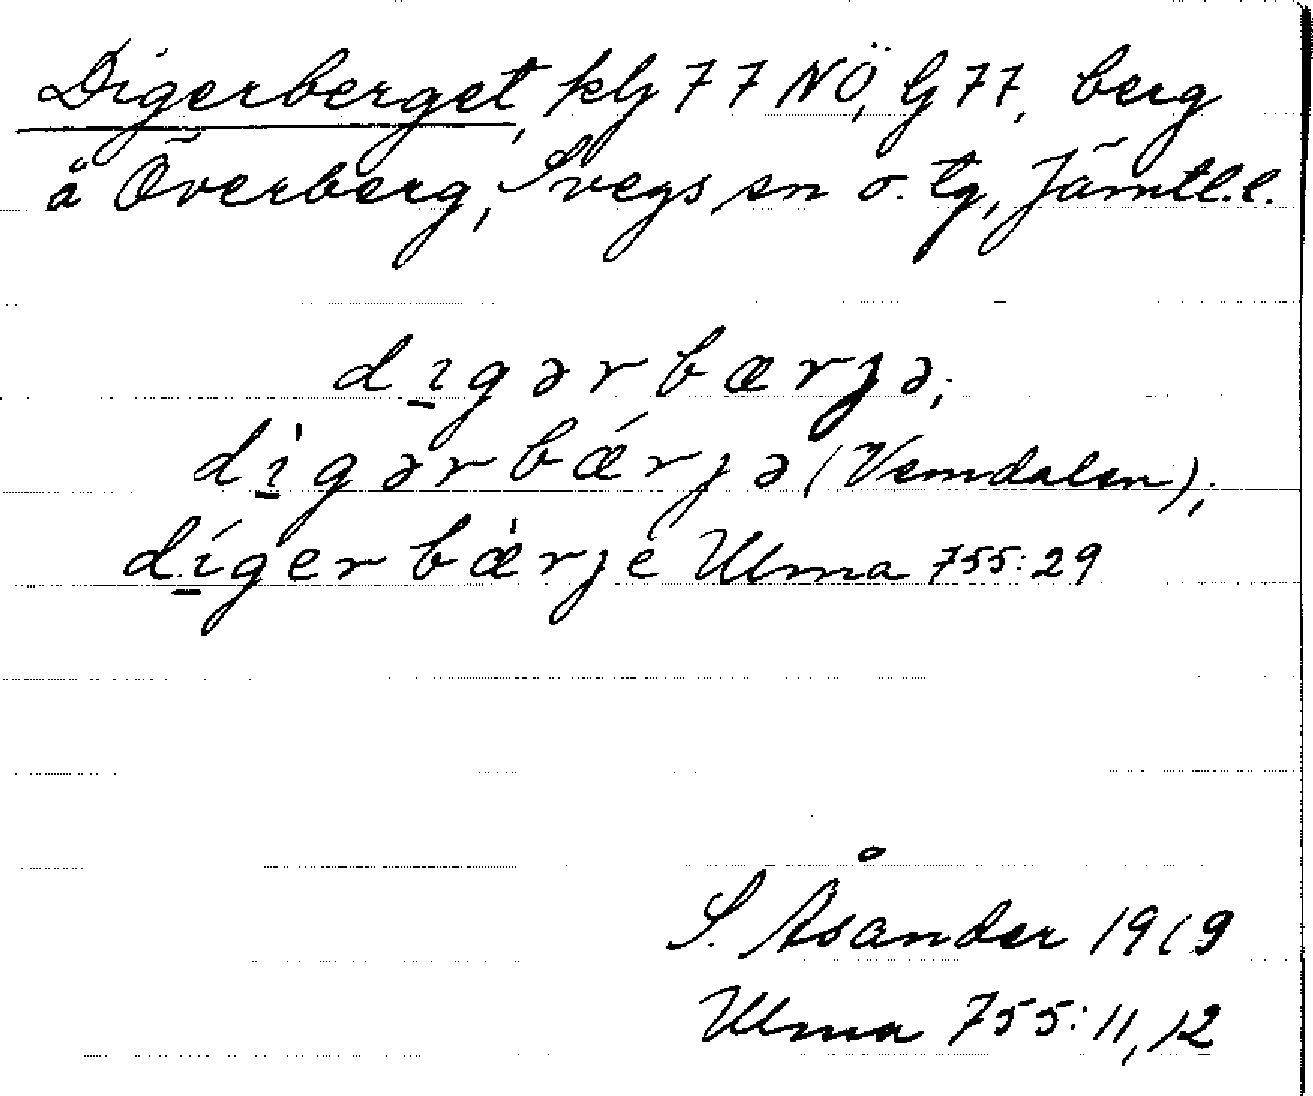 Digerberget, kbj 77 NÖ, bj 77, berg
å Överberg, Svegs sn o. tg, Jämtl.l.
digərbærjə,
dígərbǽrjə (Vemdalen),
dígerbærjè Ulma 755:29
S. Åsander 1919
Ulma 755:11,12